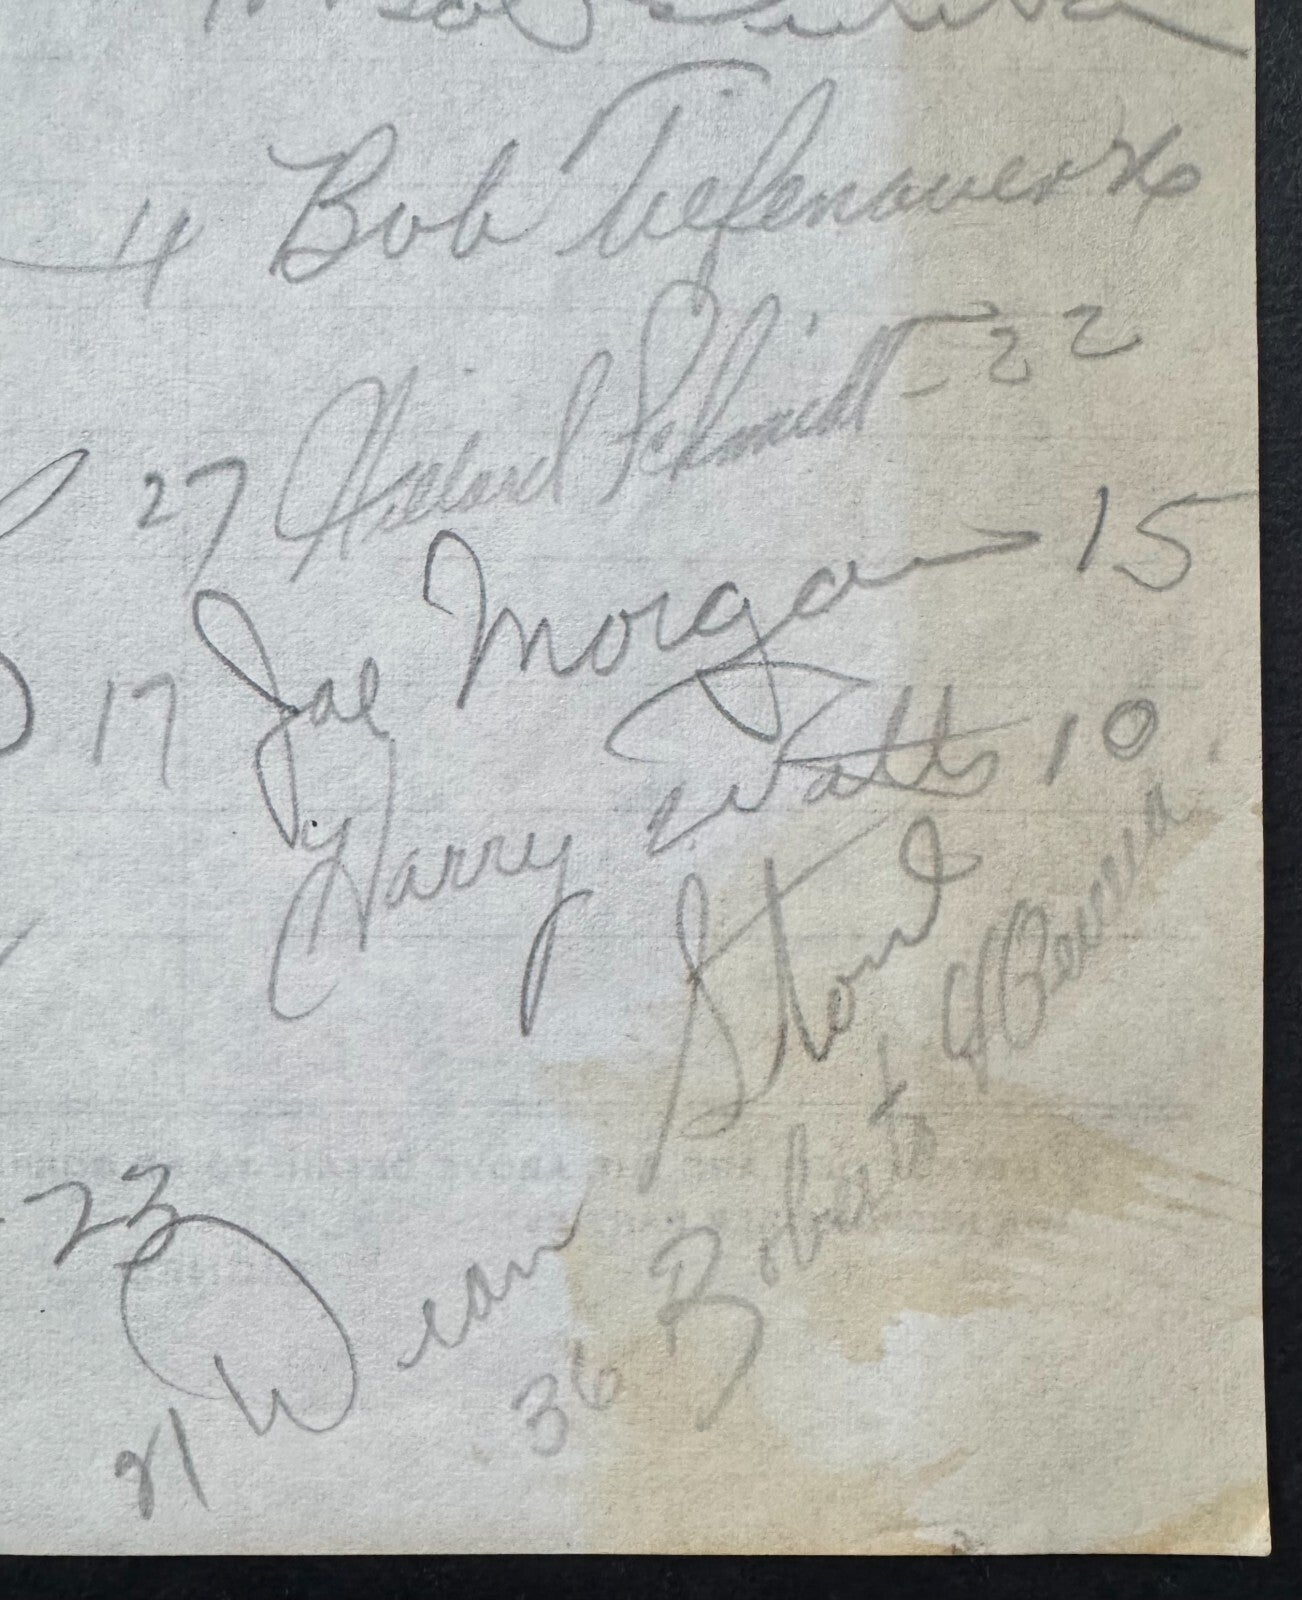 11 Bob Tiefenauer 26
27 Willard Schmidt - 22
17 Joe Morgan 15
Harry Watts 10
21 Dean Stone 23
36 Roberto